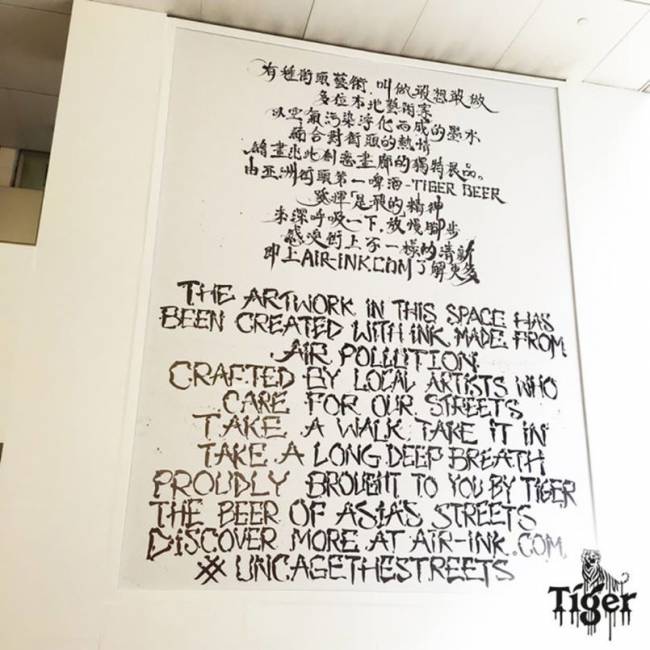 有種街頭藝術,叫做敢想敢做
多位本地藝術家
以空氣污染淨化而成的墨水
融合對街頭的熱情
繪畫出此創意畫廊的獨特展品。
由亞洲街頭第一啤酒-TIGER BEER
發揮「是飛的精神
來深呼吸一下,放慢腳步
感受街上不一樣的清新
即上AIR-INK.COM了解更多
THE ARTWORK IN THIS SPACE HAS
BEEN CREATED WITH INK MADE FROM
AIR POLLUTION
CRAFTED BY LOCAL ARTISTS WHO
CARE FOR OUR STREETS
TAKE A WALK TAKE IT IN
TAKE A LONG DEEP BREATH
PROUDLY BROUGHT TO YOU BY TIGER
THE BEER OF ASIA'S STREETS
DISCOVER MORE AT AIR-INK.COM
# UNCAGETHESTREETS
Tiger